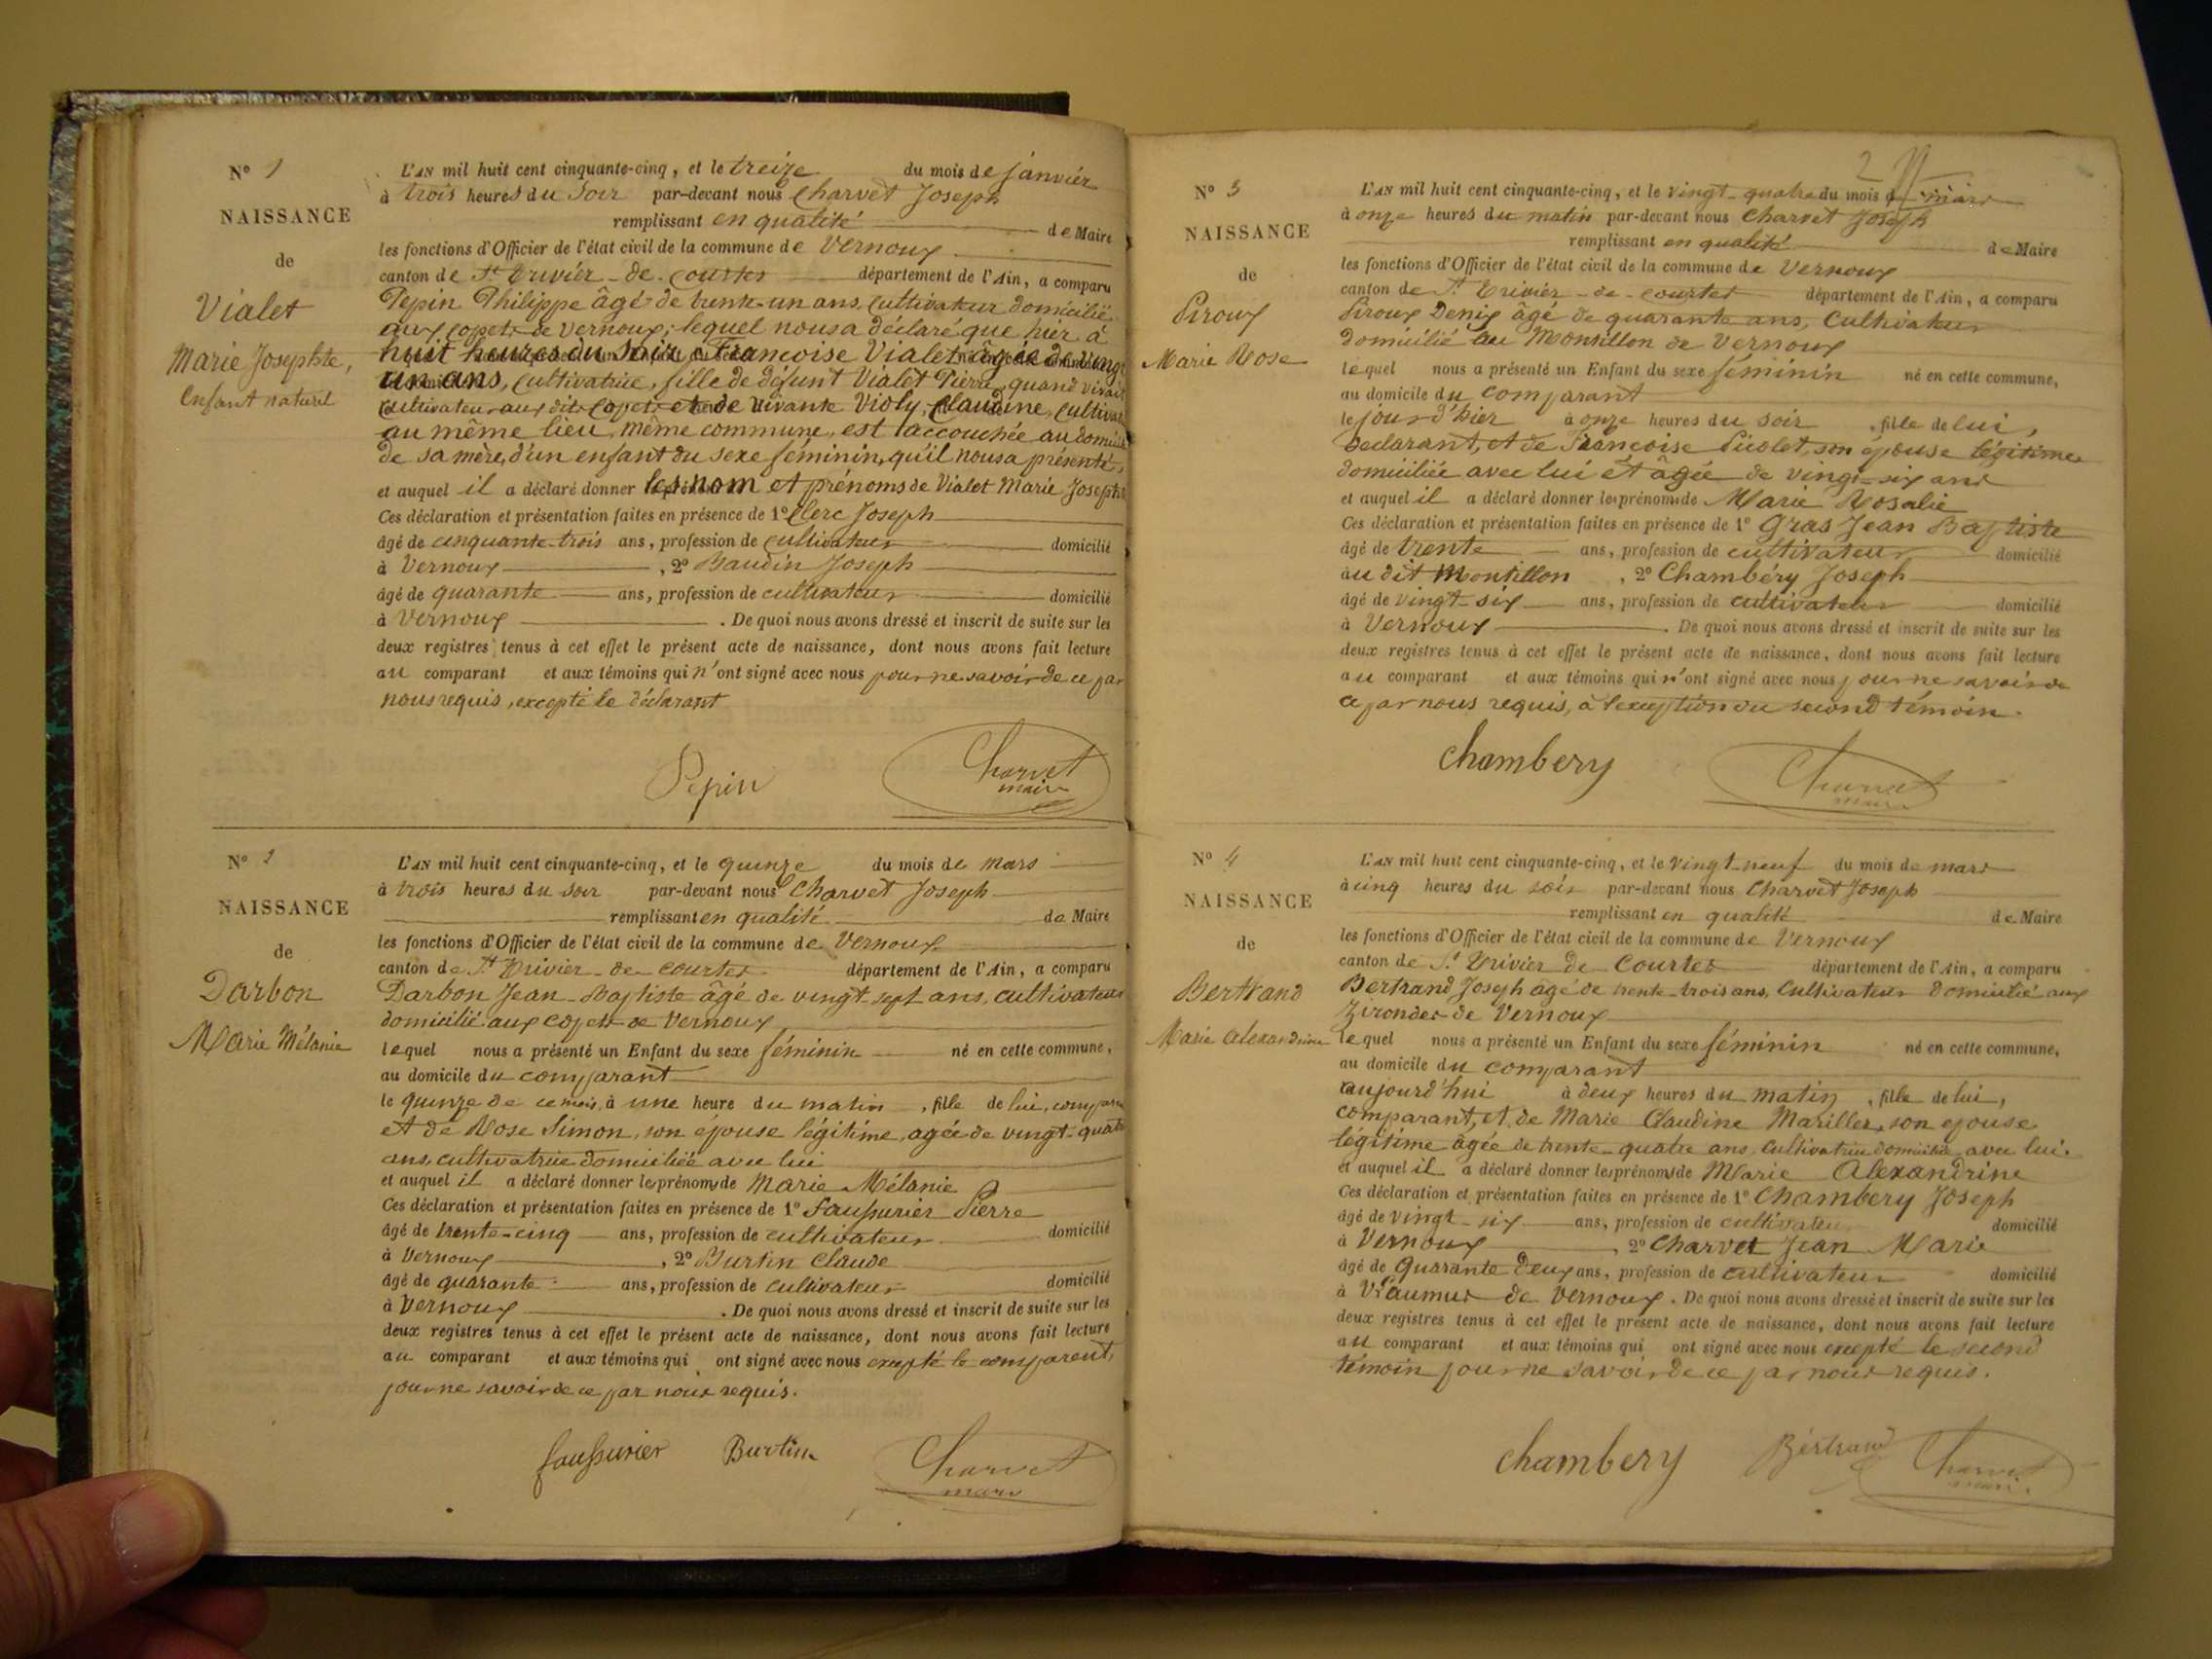 N° 1
NAISSANCE
de
Vialet
Marie Josephte,
Enfant naturel
L'AN mil huit cent cinquante-cinq, et le treize du mois de janvier
à trois heures du Soir par-devant nous Charvet Joseph
remplissant en qualité de Maire
les fonctions d'Officier de l'état civil de la commune de Vernoux
canton de St Trivier-de-Courtes département de l'Ain, a comparu
Pepin Philippe âgé de trente-un ans, cultivateur domicilié
aux Copets de Vernoux; lequel nous a déclaré que hier à
huit heures du Soir, Françoise Vialet âgée de vingt
un ans, cultivatrice, fille de défunt Vialet Pierre, quand vivait
cultivateur aux dits Copets et de vivante Violy Claudine, cultiva
au même lieu, même commune, est accouchée au domicile
de sa mère, d'un enfant du sexe féminin, qu'il nous a présenté,
et auquel il a déclaré donner les nom et prénoms de Vialet Marie Josephte
Ces déclaration et présentation faites en présence de 1° Clerc Joseph
âgé de cinquante-trois ans, profession de cultivateur domicilié
à Vernoux, 2° Baudin Joseph
âgé de quarante ans, profession de cultivateur domicilié
à Vernoux. De quoi nous avons dressé et inscrit de suite sur les
deux registres tenus à cet effet le présent acte de naissance, dont nous avons fait lecture
au comparant et aux témoins qui n'ont signé avec nous pour ne savoir de ce par
nous requis, excepté le déclarant
Pepin Charvet
maire
N° 2
NAISSANCE
de
Darbon
Marie Mélanie
L'AN mil huit cent cinquante-cinq, et le quinze du mois de mars
à trois heures du soir par-devant nous Charvet Joseph
remplissant en qualité de Maire
les fonctions d'Officier de l'état civil de la commune de Vernoux
canton de St Trivier-de-Courtes département de l'Ain, a comparu
Darbon Jean-Baptiste âgé de vingt sept ans, cultivateur
domicilié aux Copets de Vernoux
lequel nous a présenté un Enfant du sexe féminin né en cette commune,
au domicile du comparant
le quinze de ce mois, à une heure du matin, fille de lui, compara
et de Rose Simon, son épouse légitime, agée de vingt-quatre
ans, cultivatrice domiciliée avec lui
et auquel il a déclaré donner les prénoms de Marie Mélanie
Ces déclaration et présentation faites en présence de 1° Faussurier Pierre
âgé de trente-cinq ans, profession de cultivateur domicilié
à Vernoux, 2° Burtin Claude
âgé de quarante ans, profession de cultivateur domicilié
à Vernoux. De quoi nous avons dressé et inscrit de suite sur les
deux registres tenus à cet effet le présent acte de naissance, dont nous avons fait lecture
au comparant et aux témoins qui ont signé avec nous excepté le comparent,
pour ne savoir de ce par nous requis.
Faussurier Burtin Charvet
maire
2
N° 3
NAISSANCE
de
Piroux
Marie Rose
L'AN mil huit cent cinquante-cinq, et le vingt-quatre du mois de mars
à onze heures du matin par-devant nous Charvet Joseph
remplissant en qualité de Maire
les fonctions d'Officier de l'état civil de la commune de Vernoux
canton de St Trivier-de-Courtes département de l'Ain, a comparu
Piroux Denis âgé de quarante ans, Cultivateur
domicilié au Montillon de Vernoux
lequel nous a présenté un Enfant du sexe féminin né en cette commune,
au domicile du comparant
le jour d'hier à onze heures du soir, fille de lui,
déclarant, et de Françoise Puolet, son épouse légitime
domiciliée avec lui et âgée de vingt-six ans
et auquel il a déclaré donner les prénoms de Marie Rosalie
Ces déclaration et présentation faites en présence de 1° Gras Jean Baptiste
âgé de trente ans, profession de cultivateur domicilié
au dit Montillon, 2° Chambéry Joseph
âgé de vingt-six ans, profession de cultivateur domicilié
à Vernoux. De quoi nous avons dressé et inscrit de suite sur les
deux registres tenus à cet effet le présent acte de naissance, dont nous avons fait lecture
au comparant et aux témoins qui n'ont signé avec nous pour ne savoir de
ce par nous requis, à l'exception du second témoin.
Chambery Charvet
maire
N° 4
NAISSANCE
de
Bertrand
Marie Alexandrine
L'AN mil huit cent cinquante-cinq, et le vingt-neuf du mois de mars
à cinq heures du soir par-devant nous Charvet Joseph
remplissant en qualité de Maire
les fonctions d'Officier de l'état civil de la commune de Vernoux
canton de St Trivier de Courtes département de l'Ain, a comparu
Bertrand Joseph âgé de trente-trois ans, Cultivateur domicilié aux
Zirondes de Vernoux
lequel nous a présenté un Enfant du sexe féminin né en cette commune,
au domicile du comparant
aujourd'hui à deux heures du matin, fille de lui,
comparant, et de Marie Claudine Mariller, son epouse
légitime âgée de trente-quatre ans, cultivatrice domiciliée avec lui.
et auquel il a déclaré donner les prénoms de Marie Alexandrine
Ces déclaration et présentation faites en présence de 1° Chambery Joseph
âgé de vingt-six ans, profession de cultivateur domicilié
à Vernoux, 2° Charvet Jean Marie
âgé de Quarante deux ans, profession de cultivateur domicilié
à de Vernoux. De quoi nous avons dressé et inscrit de suite sur les
deux registres tenus à cet effet le présent acte de naissance, dont nous avons fait lecture
au comparant et aux témoins qui ont signé avec nous excepté le second
témoin pour ne savoir de ce par nous requis.
Chambery Bertrand Charvet
maire